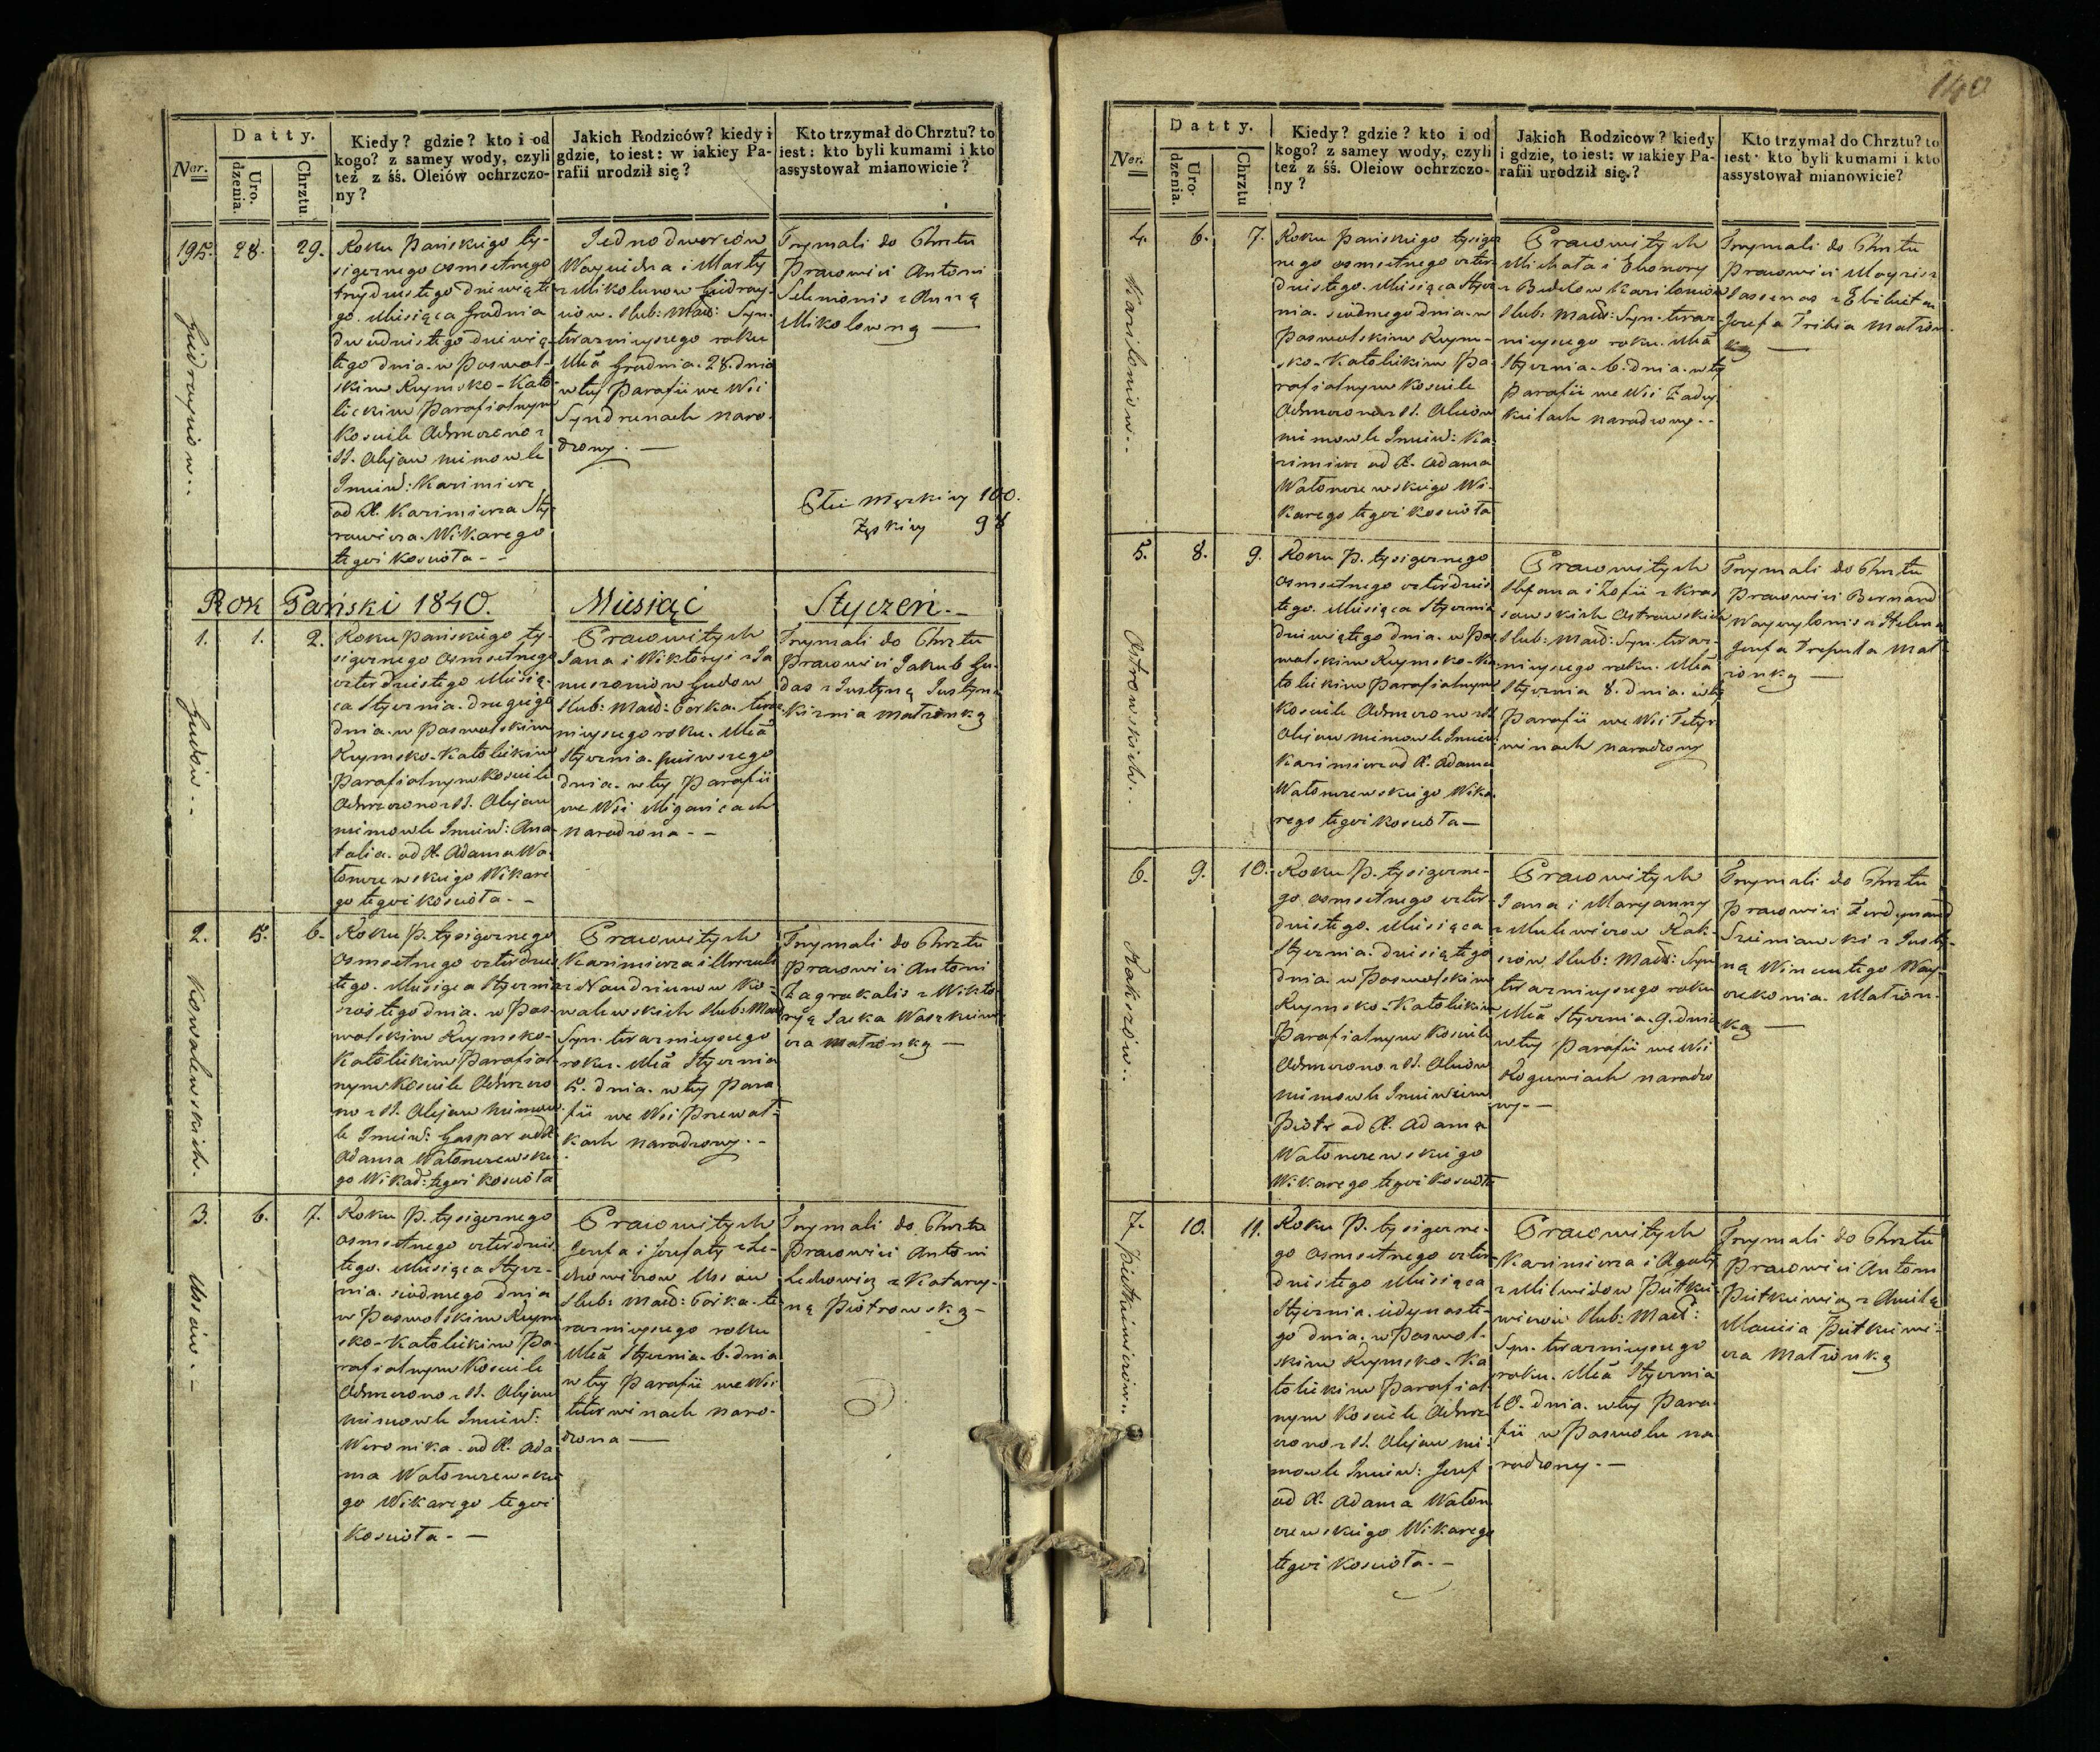 140
Datty.
Ner.
Uro.
dzenia.
Chrztu
Kiedy? gdzie? kto i od
kogo? z samey wody, czyli
też z śś. Oleiów ochrzczo-
ny?
Jakich Rodziców? kiedy i
gdzie, to iest: w iakiey Pa-
rafii urodził się?
Kto trzymał do Chrztu? to
iest: kto byli kumami i kto
assystował mianowicie?
195. 28. 29.
Roku Pańskiego ty-
siącznego osmsetnego
trzydziestego dziewiąte
go. Miesiąca Grudnia
dwudziestego dziewią-
tego dnia. w Poswol-
skim Rzymsko-Kato
lickim Parafialnym
Kosciele Ochrzczono z
SS. Olejow mimowle
Imieiñ: Kazimierz
od X. Kazimierza
Wikarego
tegoż Kościoła - -
Jednodworców
i Marty
z Mikolunow
now. slub: Małż: Syn.
teraznieyszego roku
Mca Grudnia. 28. dnia
w tey Parafii we Wsi
Syndrunach naro-
dzony. —
Trzymali do Chrztu
Pracowici Antoni
z Anną
—
męzkiey 100.
Żęskiey 98
Rok Pański 1840. Miesiąć Styczeń. -
1. 1. 2.
Gudow..
Roku Pańskiego ty-
siącznego Osmsetnego
czterdziestego Miesią-
ca Stycznia. drugiego
dnia. w Poswolskim
Rzymsko-Katolickim
Parafialnym Kosciele
Ochrzczono z SS. Olejow
mimowle Imieiñ: Ana-
talia. od X. Adama Wa-
tonczewskiego Wikare
go tegoż Kościoła. - -
Pracowitych
Jana i Wiktoryi z Ja
nuszoniow Gudow
Slub: Małż: Corka. teraz
nieyszego roku. Mca
Stycznia. pierwszego
dnia. w tey Parafii
we Wsi Migonicach
narodzona - -
Trzymali do Chrztu
Pracowici Jakub Gu-
das z Justyną Justyna
matrónką
2. 5. 6.
Kowalewskich.
Roku P. tysiącznego
Osmsetnego czterdzies
tego. Miesiąca Stycznia
szostego dnia. w Pos-
wolskim Rzymsko-
Katolickim Parafial
nym Kosciele Ochrzczo
no z SS. Olejow mimow
le Imieiñ: Gaspar od X
Adama Watonczewskie
go Wikar: tegoż Kościoła
Pracowitych
Kazimierza i Urszuli
z Naudziunow Ko-
walewskich slub: Małż
Syn. teraznieyszego
roku. Mca Stycznia
5. dnia. w tey Para
fii we Wsi Przewał-
kach narodzony. -
Trzymali do Chrztu
Pracowici Antoni
Zagrakalis z Wikto
ryą Jacka Waszkiewi
cza matrónką —
3. 6. 7.
Roku P. tysiącznego
osmsetnego czterdzies
tego. Miesiąca Stycz-
nia. siodmego dnia
w Poswolskim Rzym
sko-Katolickim Pa-
rafialnym Kosciele
Ochrzczono z SS. Olejow
mimowle Imieiñ:
Weronika. od X. Ada
ma Watonczewskie
go Wikarego tegoż
Kościoła. - —
Pracowitych
Jozefa i Jozefaty z Le-
chowiczow
Slub: Małż: Corka. te
raznieyszego roku
Mca Stycznia. 6. dnia
w tey Parafii we Wsi
naro-
dzona —
Trzymali do Chrztu
Pracowici Antoni
Lechowicz z Katarzy-
ną Piotrowską -
Datty.
Ner.
Uro-
dzenia.
Chrztu
Kiedy? gdzie? kto i od
kogo? z samey wody, czyli
też z śś. Oleiow ochrzczo-
ny?
Jakich Rodzicow? kiedy
i gdzie, to iest: w iakiey Pa-
rafii urodził się?
Kto trzymał do Chrztu? to
iest: kto byli kumami i kto
assystował mianowicie?
4. 6. 7.
Roku Pańskiego tysiącz
nego osmsetnego czter-
dziestego. Miesiąca Stycz
nia. siodmego dnia. w
Poswolskim Rzym-
sko-Katolickim Pa-
rafialnym Kosciele
Ochrzczono z SS. Oleiow
mimowle Imieiñ: Ka-
zimierz od X. Adama
Watonczewskiego Wi-
karego tegoż Kościoła
Pracowitych
Michała i Elonory
z
Slub: Małż: Syn. teraz-
nieyszego roku. Mca
Stycznia. 6. dnia. w tey
Parafii we Wsi Zady-
kielach narodzony. -
Trzymali do Chrztu
Pracowici
Jozefa matron-
ką —
5. 8. 9.
Ostrowskich..
Roku P. tysiącznego
Osmsetnego czterdzies
tego. Miesiąca Stycznia
dziewiątego dnia. w Pos
wolskim Rzymsko-Ka
tolickim Parafialnym
Kosciele Ochrzczono z SS
Olejow mimowle Imieiñ:
Kazimierz od X. Adama
Watonczewskiego Wika
rego tegoż Kościoła —
Pracowitych
Stefana i Zofii z Kras
sowskich Ostrowskich
Slub: Małż: Syn. teraz-
nieyszego roku. Mca
Stycznia 8. dnia. w tey
Parafii we Wsi Tetyr
winach narodzony
Trzymali do Chrztu
Pracowici Bernard
z Heleną
Jozefa Trepszta Mat-
rónką —
6. 9. 10.
Rakszow..
Roku P. tysiączne-
go osmsetnego czter-
dziestego. Miesiąca
Stycznia. dziesiątego
dnia. w Poswolskim
Rzymsko-Katolickim
Parafialnym Kosciele
Ochrzczono z SS. Oleiow
mimowle Imieniem
Piotr od X. Adama
Watonczewskiego
Wikarego tegoż Kościoła
Pracowitych
Jana i Maryanny
z Mulewiczow Rak-
szow slub: Małż: Syn
teraznieyszego roku
Mca Stycznia. 9. dnia
w tey Parafii we Wsi
Roguwiach narodzo
ny. —
Trzymali do Chrztu
Pracowici Ferdynand
Szieniawski z Justy-
ną Wincentego Way
Matron-
ką —
7. 10. 11.
Pietkiewiczow..
Roku P. tysiączne-
go osmsetnego czter-
dziestego Miesiąca
Stycznia. iedynaste-
go dnia. w Poswol-
skim Rzymsko-Ka
tolickim Parafial
nym Kosciele Ochrz
czono z SS. Olejow mi-
mowle Imieiñ: Jozef
od X. Adama Waton
czewskiego Wikarego
tegoż Kościoła. —
Pracowitych
Kazimierza i Agaty
z Milwidow Pietkie-
wiczow Slub: Małż:
Syn. teraznieyszego
roku. Mca Stycznia
10. dnia. w tey Para-
fii w Poswolu na
rodzony. —
Trzymali do Chrztu
Pracowici Antoni
Pietkiewicz z Anielą
Macieia Pietkiewi-
cza Matrónką